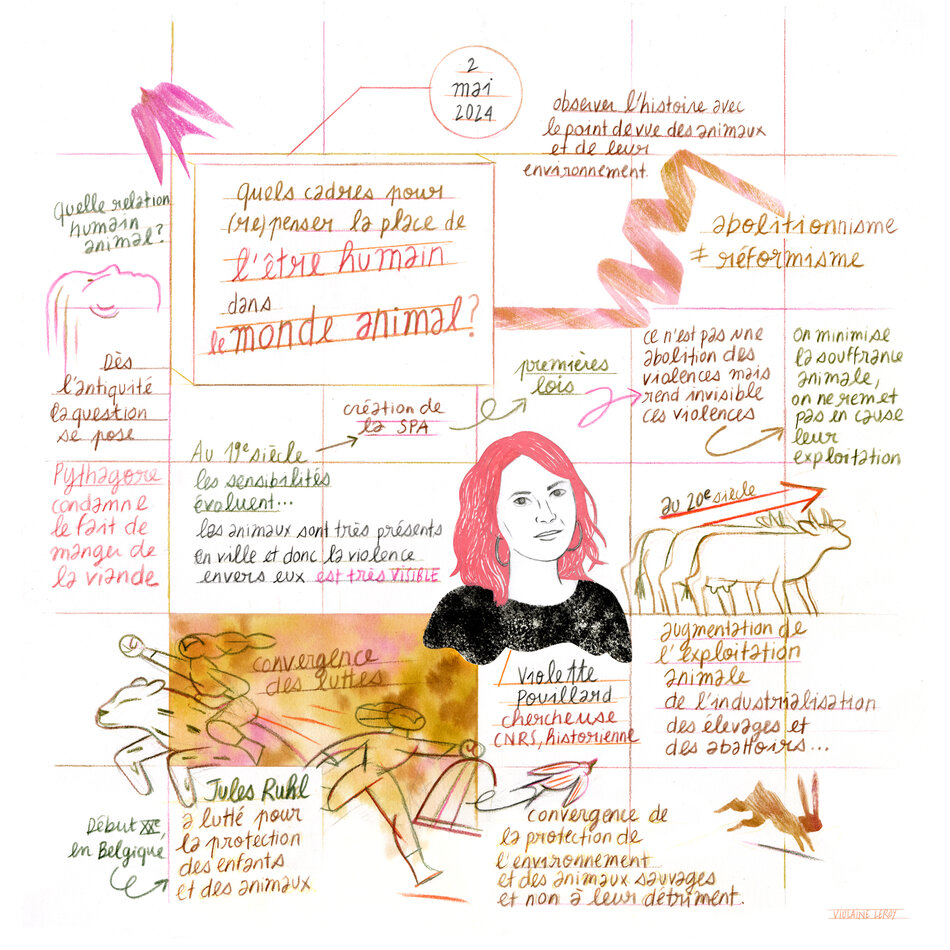 2
mai
2024
Quels cadres pour
(re)penser la place de
l'être humain
dans
le monde animal?
observer l'histoire avec
le point de vue des animaux
et de leur
environnement
Quelle relation
humain
animal?
abolitionnisme
≠ réformisme
Dès
l'antiquité
la question
se pose
Pythagore
condamne
le fait de
manger de
la viande
Au 19e siècle
les sensibilités
évoluent...
les animaux sont très présents
en ville et donc la violence
envers eux est très VISIBLE
création de
la SPA
premières
lois
ce n'est pas une
abolition des
violences mais
rend invisible
ces violences
On minimise
la souffrance
animale,
on ne remet
pas en cause
leur
exploitation
au 20e siècle
augmentation de
l'exploitation
animale
de l'industrialisation
des élevages et
des abattoirs...
Violette
Pouillard
chercheuse
CNRS, historienne
convergence
des luttes
Début XXe,
en Belgique
Jules Ruhl
a lutté pour
la protection
des enfants
et des animaux
convergence de
la protection de
l'environnement
et des animaux sauvages
et non à leur détriment.
VIOLAINE LEROY